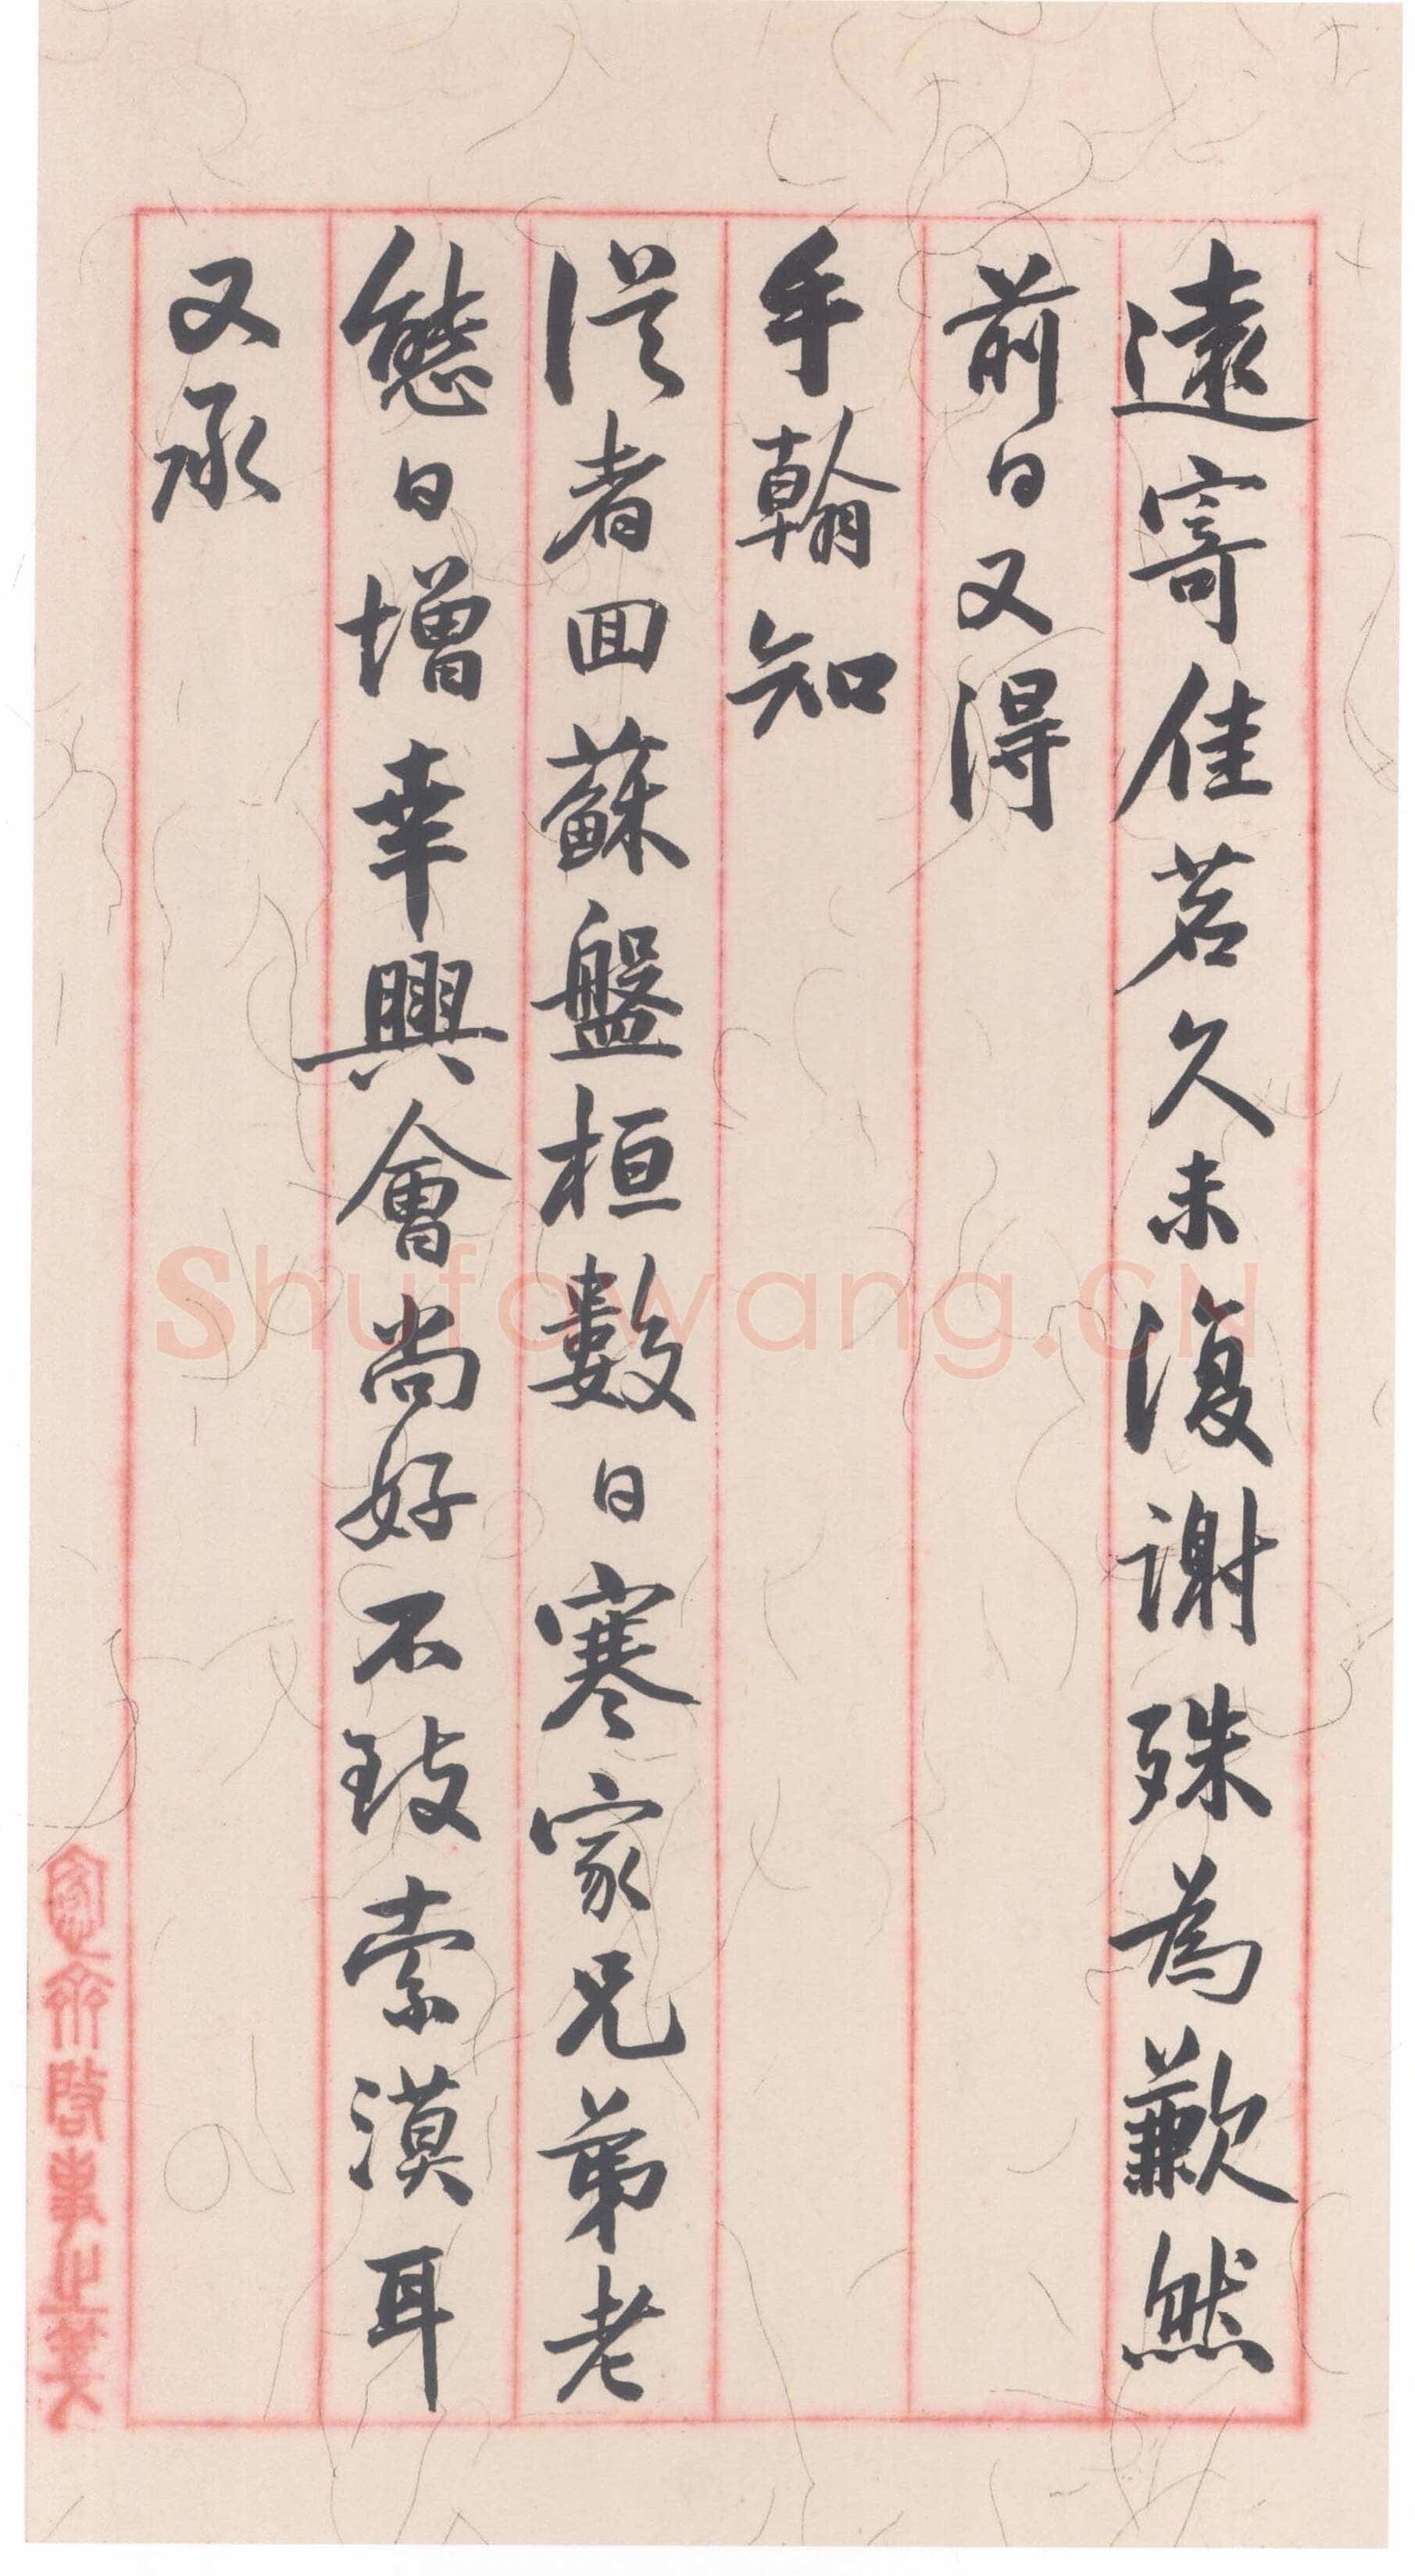 遠寄佳茗久未復謝殊為歉然
前日又得
手翰知
從者回蘇盤桓數日寒家兄弟老
態日增幸興會尚好不致索漠耳
又承
Shufawang.CN